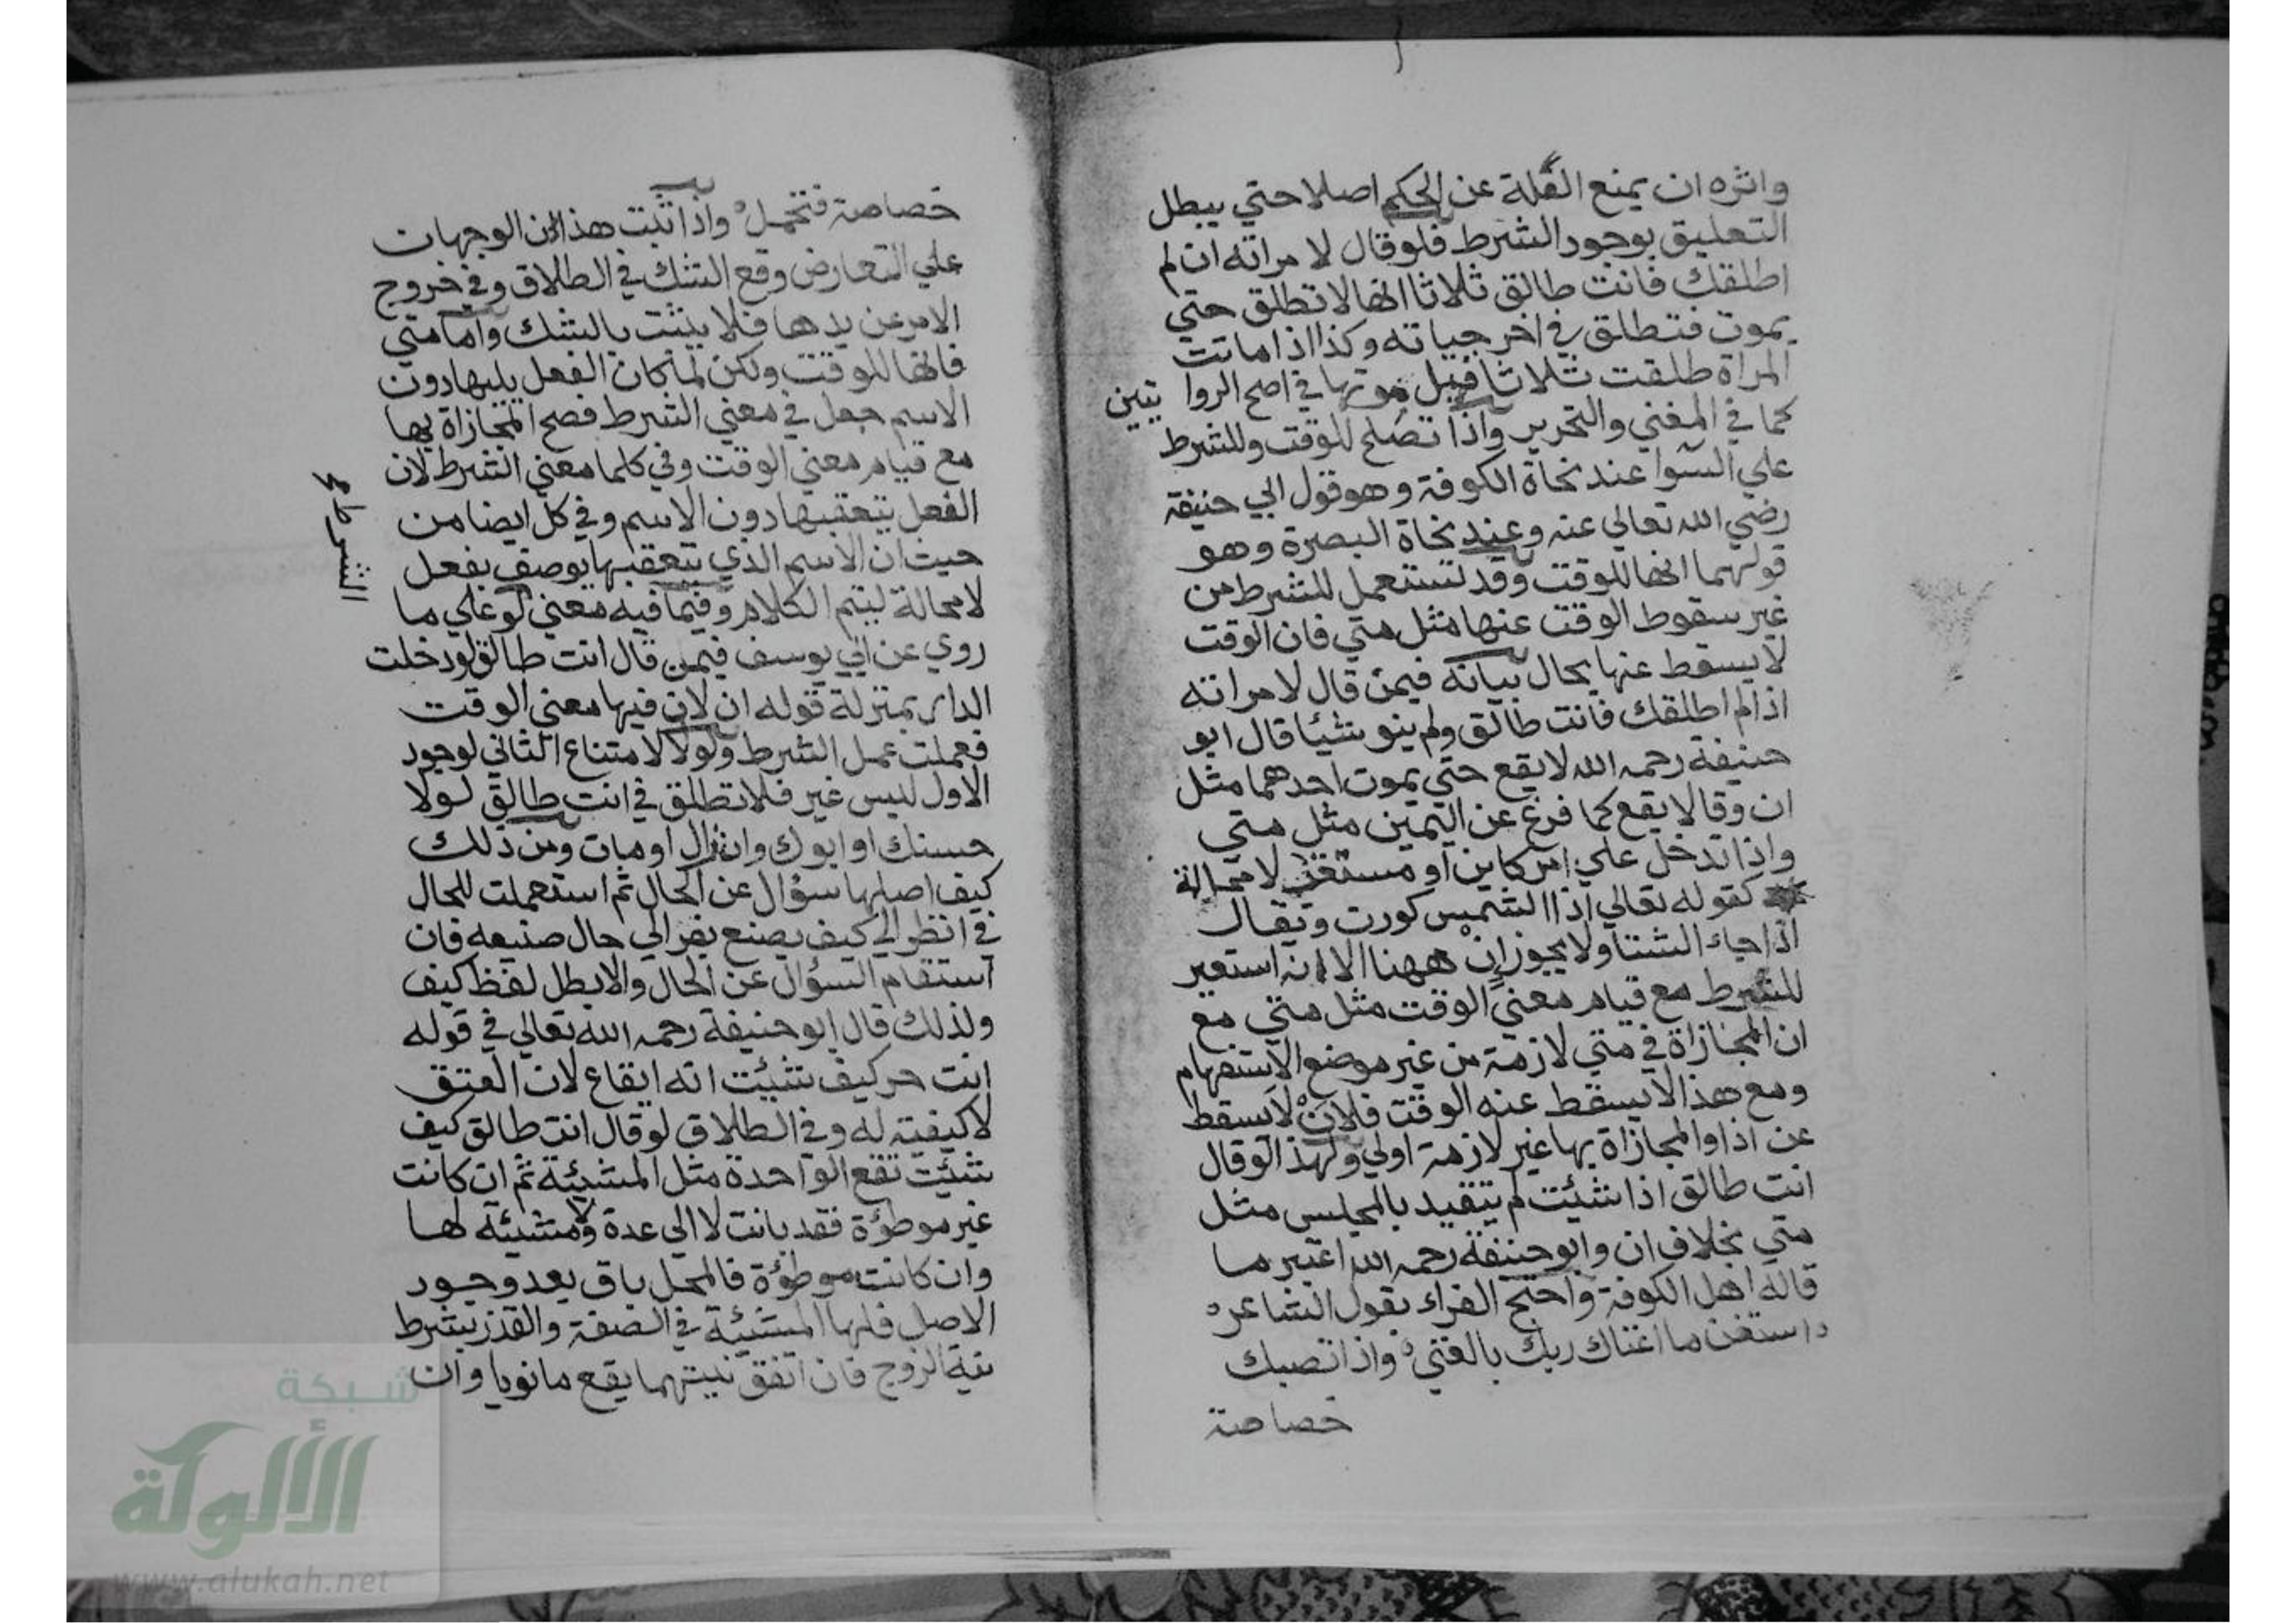 واثره ان يمنع العلة عن الحكم اصلا حتي يبطل
التعليق بوجود الشرط فلو قال لامراته ان لم
اطلقك فانت طالق ثلاثا انها لا تطلق حتي
يموت فتطلق في اخر حياته وكذا اذا ماتت
المراة طلقت ثلاثا قبل موتها في اصح الروايتين
كما في المغني والتحرير واذا تصلح للوقت وللشرط
علي السوا عند نحاة الكوفة وهو قول ابي حنيفة
رضي الله تعالي عنه وعند نحاة البصرة وهو
قولهما انها للوقت وقد تستعمل للشرط من
غير سقوط الوقت عنها مثل متي فان الوقت
لا يسقط عنها بحال بيانه فيمن قال لامراته
اذا لم اطلقك فانت طالق ولم ينو شيئا قال ابو
حنيفة رحمه الله لا يقع حتي يموت احدهما مثل
ان وقالا يقع كما فرغ عن اليمين مثل متي
واذا تدخل علي امر كاين او منتظر لا محالة
كقوله تعالي اذا الشمس كورت ويقال
اذا جاء الشتا ولا يجوز ان ههنا الا انه استعير
للشرط مع قيام معني الوقت مثل متي مع
ان المجازاة في متي لازمة من غير موضع الاستفهام
ومع هذا لا يسقط عنه الوقت فلان لا يسقط
عن اذا والمجازاة بها غير لازمة اولي ولهذا لو قال
انت طالق اذا شئت لم يتقيد بالمجلس مثل
متي بخلاف ان وابو حنيفة رحمه الله اعتبر ما
قاله اهل الكوفة واحتج الفراء بقول الشاعر ه
واستغن ما اغناك ربك بالغني ه واذا تصبك
خصاصة
خصاصة فتحمل ه واذا ثبت هذا ان الوجهان
علي التعارض وقع الشك في الطلاق وفي خروج
الامر عن يدها فلا يثبت بالشك واما متي
فانها للوقت ولكن لما كان الفعل يليها دون
الاسم جعل في معني الشرط فصح المجازاة بها
مع قيام معني الوقت وفي كلما معني الشرط لان
الفعل يتعقبها دون الاسم وفي كل ايضا من
الشرط
حيث ان الاسم الذي يتعقبها يوصف بفعل
لا محالة ليتم الكلام وفيما فيه معني لو علي ما
روي عن ابي يوسف فيمن قال انت طالق لو دخلت
الدار بمنزلة قوله ان لان فيها معني الوقت
فعملت عمل الشرط ولولا لامتناع الثاني لوجود
الاول ليس غير فلا تطلق في انت طالق لولا
حسنك او ابوك وان زال او مات ومن ذلك
كيف اصلها سؤال عن الحال ثم استعملت للحال
في انظر الي كيف يصنع يفر الي حال صنيعه فان
استقام السؤال عن الحال والا بطل لفظ كيف
ولذلك قال ابو حنيفة رحمه الله تعالي في قوله
انت حر كيف شئت انه ايقاع لان العتق
لا كيفية له وفي الطلاق لو قال انت طالق كيف
شئت تقع الواحدة مثل المشيئة ثم ان كانت
غير موطؤة فقد بانت لا الي عدة ولا مشيئة لها
وان كانت موطؤة فالمحل باق بعد وجود
الاصل فلها المشيئة في الصفة والقدر بشرط
نية الزوج فان اتفق نيتهما يقع ما نويا وان
شبكة
الألوكة
www.alukah.net